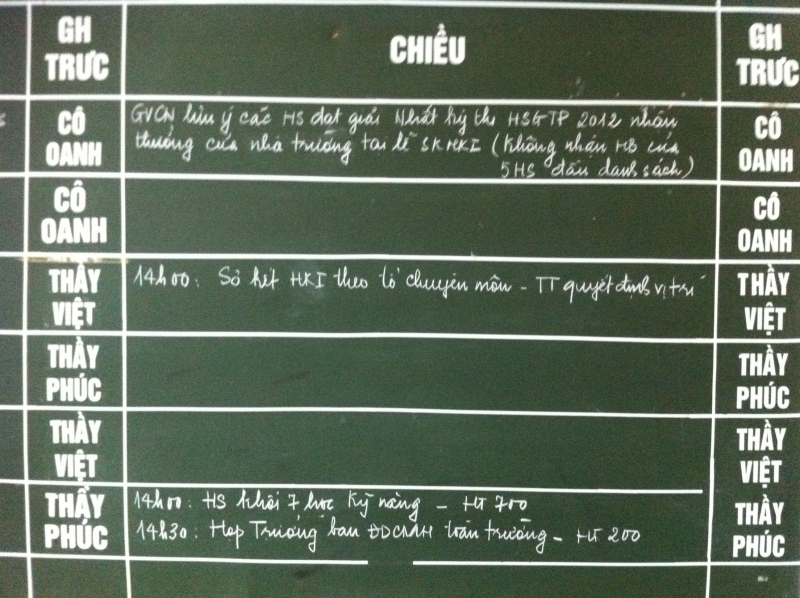 GH TRƯC
CHIỀU
GH TRƯC
CÔ OANH
GVCN lưu ý các HS đạt giải Nhất kỳ thi HSGTP 2012 nhận
thưởng của nhà trường tại lễ SK HKI (không nhận HB của
5HS đầu danh sách)
CÔ OANH
CÔ OANH
CÔ OANH
THẦY VIỆT
14h00: Sơ kết HKI theo tổ chuyên môn - TT quyết định vị trí
THẦY VIỆT
THẦY PHÚC
THẦY PHÚC
THẦY VIỆT
THẦY VIỆT
THẦY PHÚC
14h00: HS khối 7 học Kỹ năng - HT 700
14h30: Họp Trưởng ban ĐDCMHS toàn trường - HT 200
THẦY PHÚC